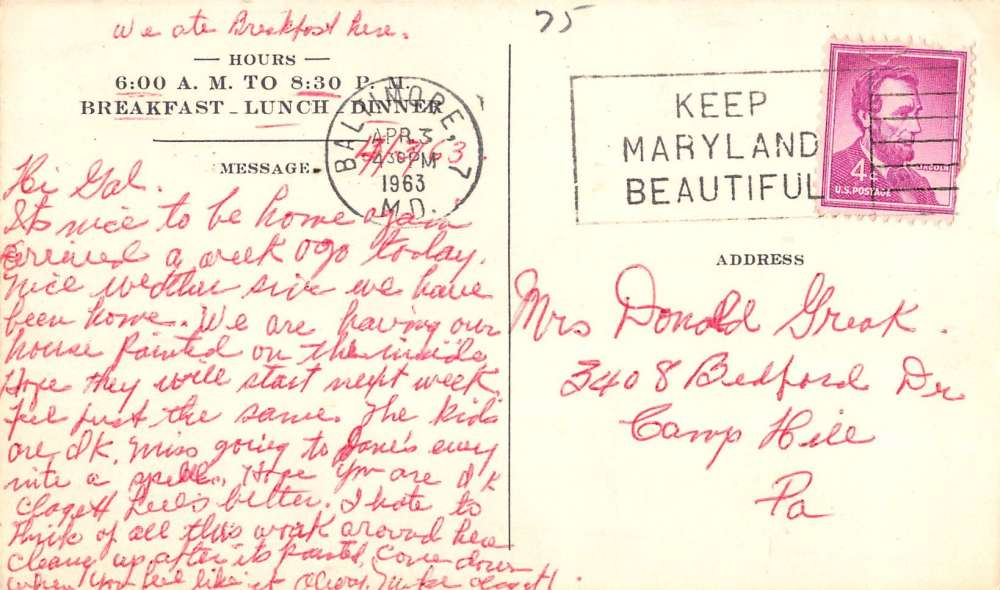 75
We ate Breakfast here.
— HOURS —
6:00 A. M. TO 8:30 P. M.
BREAKFAST - LUNCH - DINNER
MESSAGE
BALTIMORE, 7
APR 3
4 30 PM
1963
M.D.
KEEP
MARYLAND
BEAUTIFUL
LINCOLN
4¢
U.S. POSTAGE
Hi Gal.
Its nice to be home again
arrived a week ago today.
nice wedther sive we have
been home. We are having our
house painted on the inside
Hope they will start next week,
feel just the same. The kids
are, OK. Miss going to Jane's every
nite a spell. Hope you are OK
Clagett feels better. I hate to
think of all this work around here
cleany up after its painted, Come down
when you feel like it
ADDRESS
Mrs Donald Greak.
3408 Bedford Dr
Camp Hill
Pa